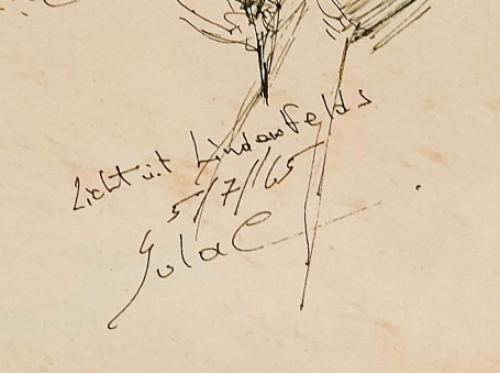 Zicht uit Lindenfelds
5/7/65